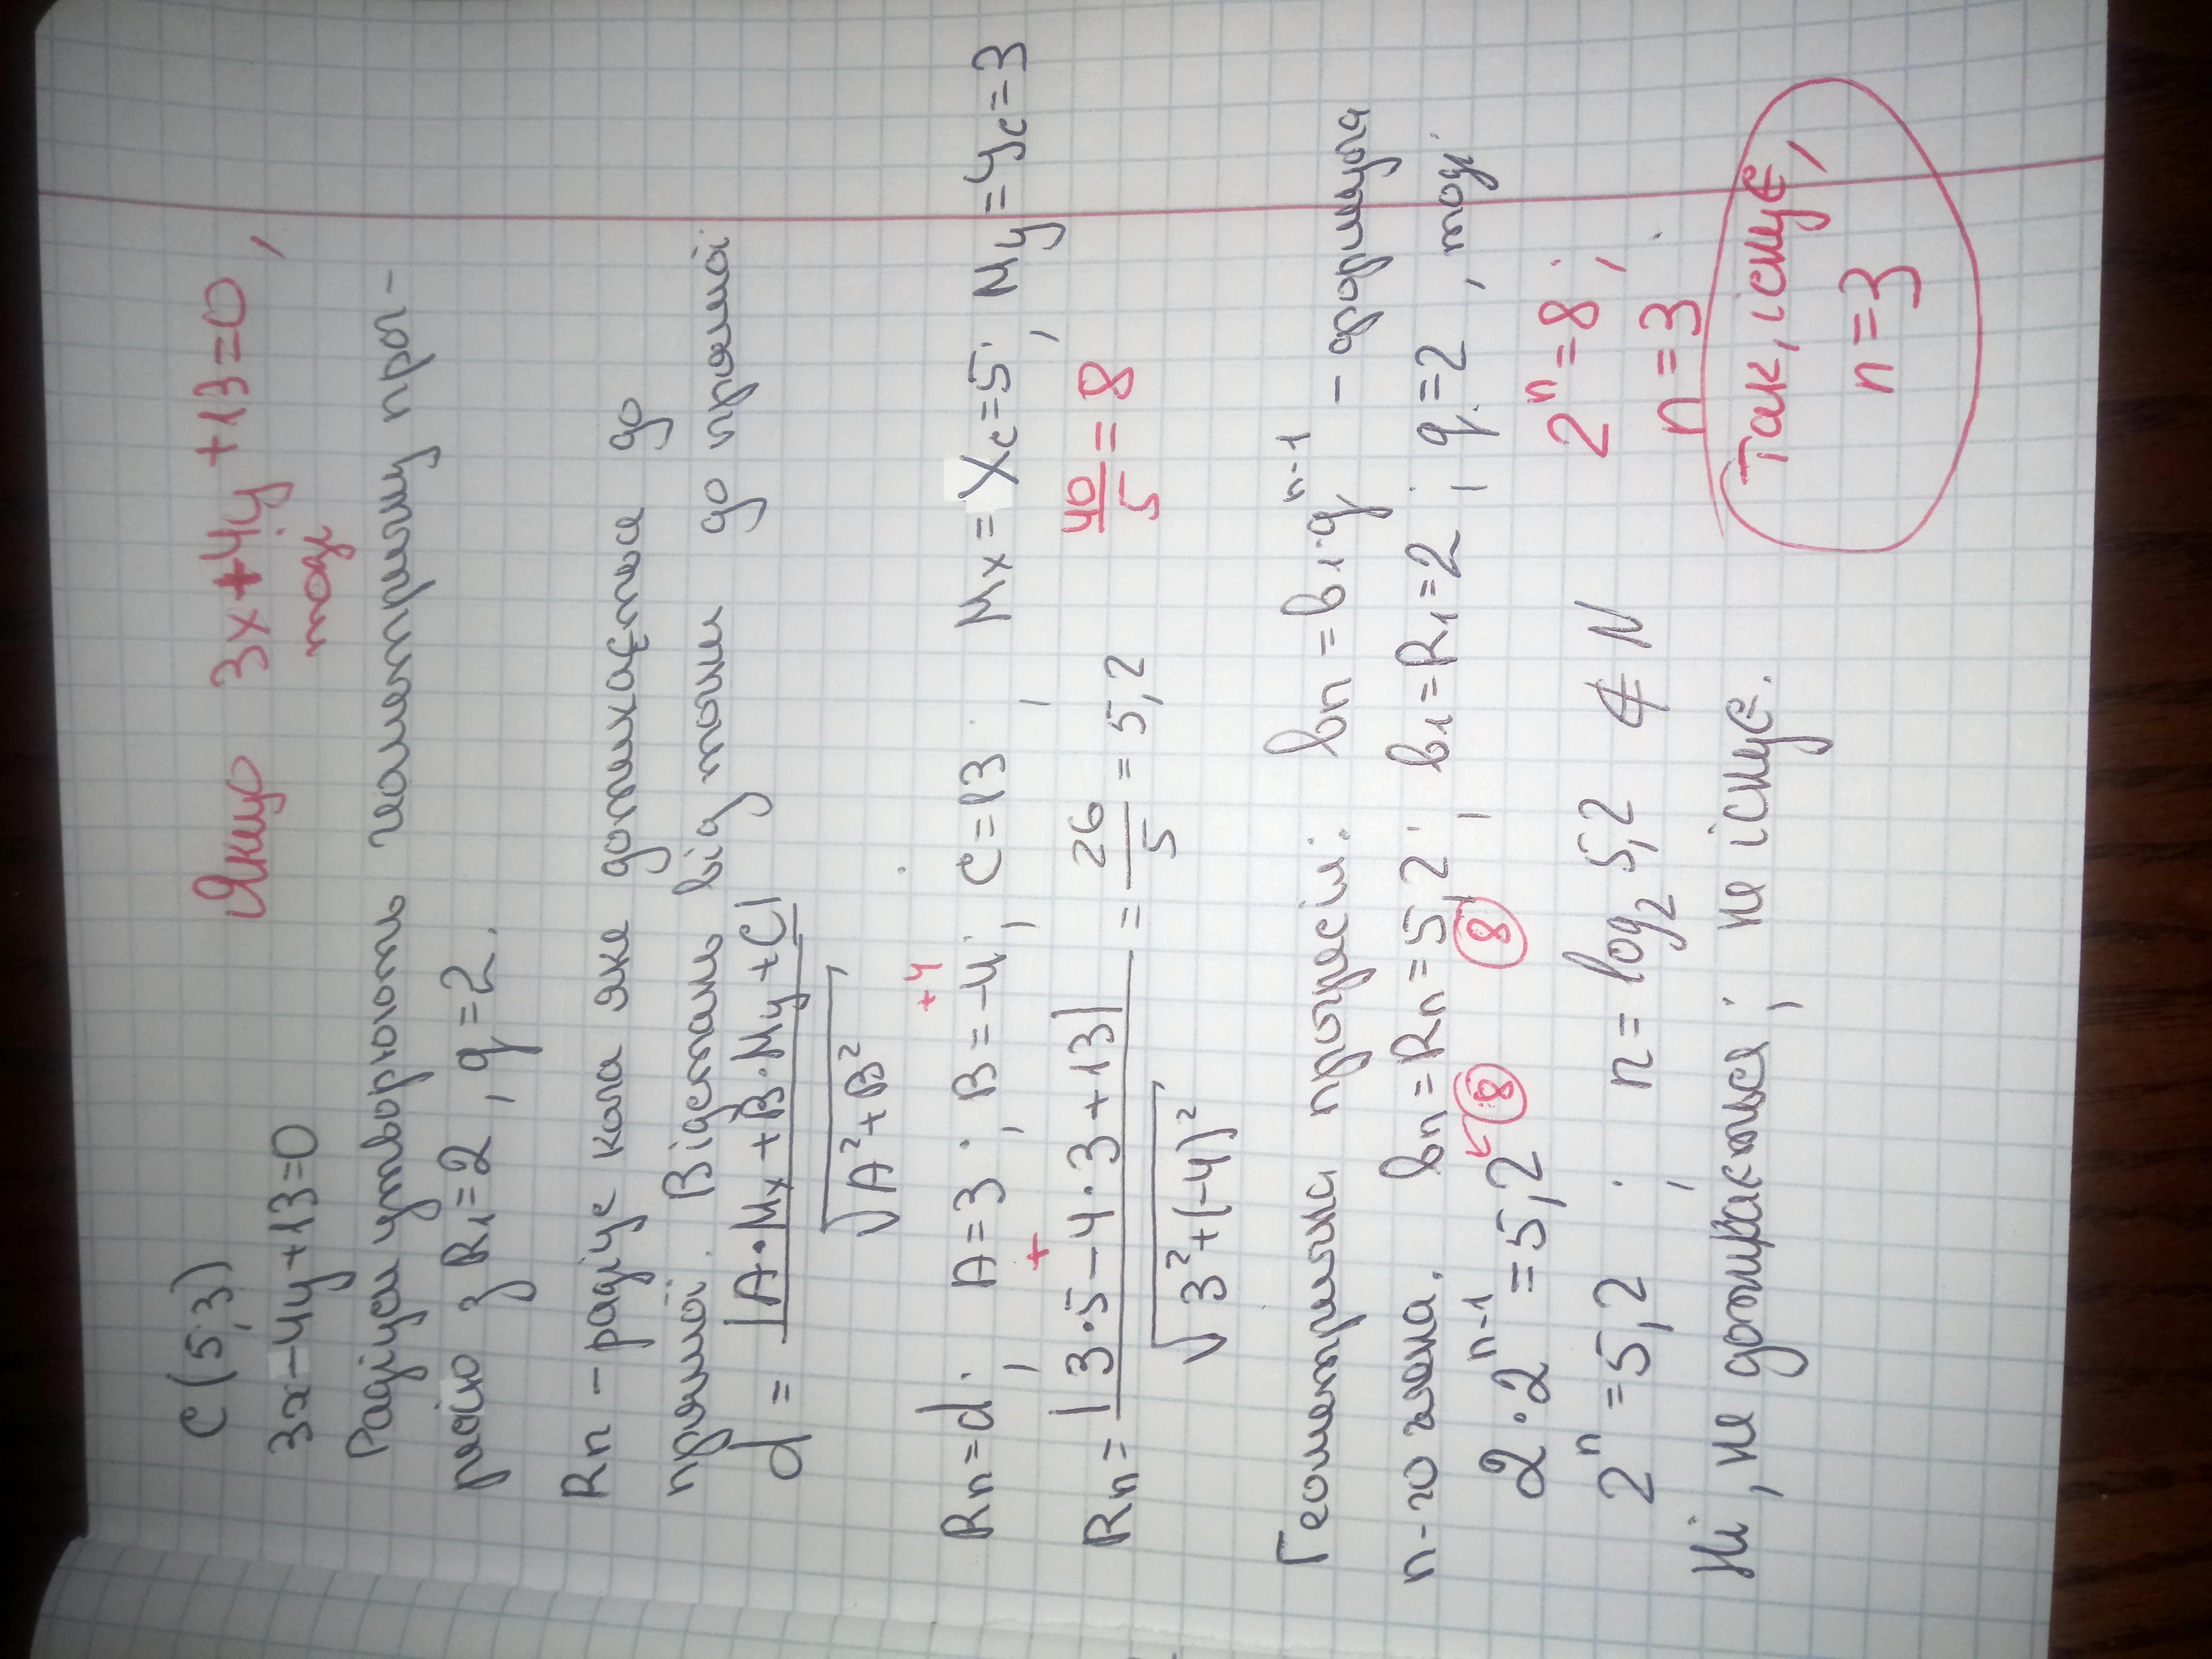 C(5;3)
3x-4y+13=0
Якщо 3x+4y+13=0,
тоді
Радіуси утворюють геометричну прог-
ресію з R₁=2, q=2.
Rn – радіус кола яке дотикається до
прямої. Відстань від точки до прямої
d = |A·Mx+B·My+C| / √(A²+B²)
+4
Rn=d; A=3; B=-4; C=13; Mx=Xc=5; My=Yc=3
+
Rn = |3·5-4·3+13| / √(3²+(-4)²) = 26/5 = 5,2 40/5 = 8
Геометрична прогресія: bn=b₁·qⁿ⁻¹ – формула
n-го члена. bn=Rn=5,2; b₁=R₁=2; q=2, тоді
8
2·2ⁿ⁻¹=5,2 8 2ⁿ=8;
2ⁿ=5,2; n=log₂5,2 ∉ N n=3
Ні, не дотикається; не існує.
Так, існує,
n=3